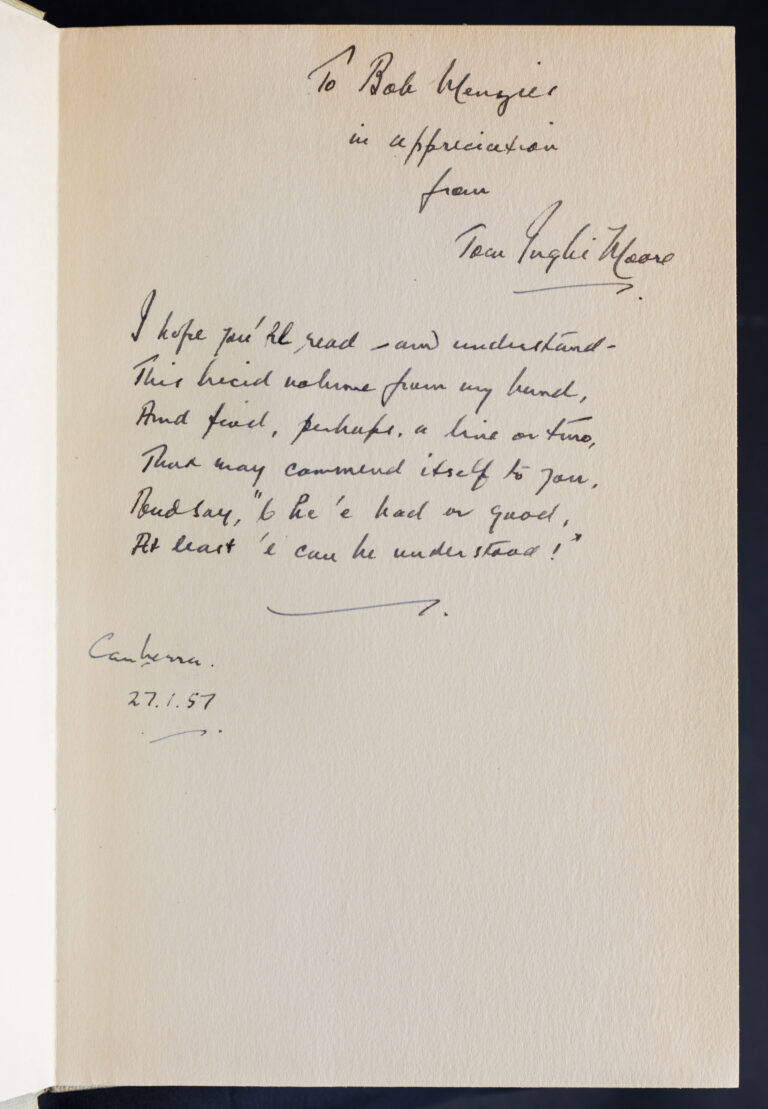 To Bob Menzies
in appreciation
from
Tom Inglis Moore
I hope you'll read – and understand –
This lucid volume from my hand,
And find, perhaps, a line or two,
That may commend itself to you,
And say, "be 'e bad or good,
At least 'e can be understood!"
Canberra.
27.1.57